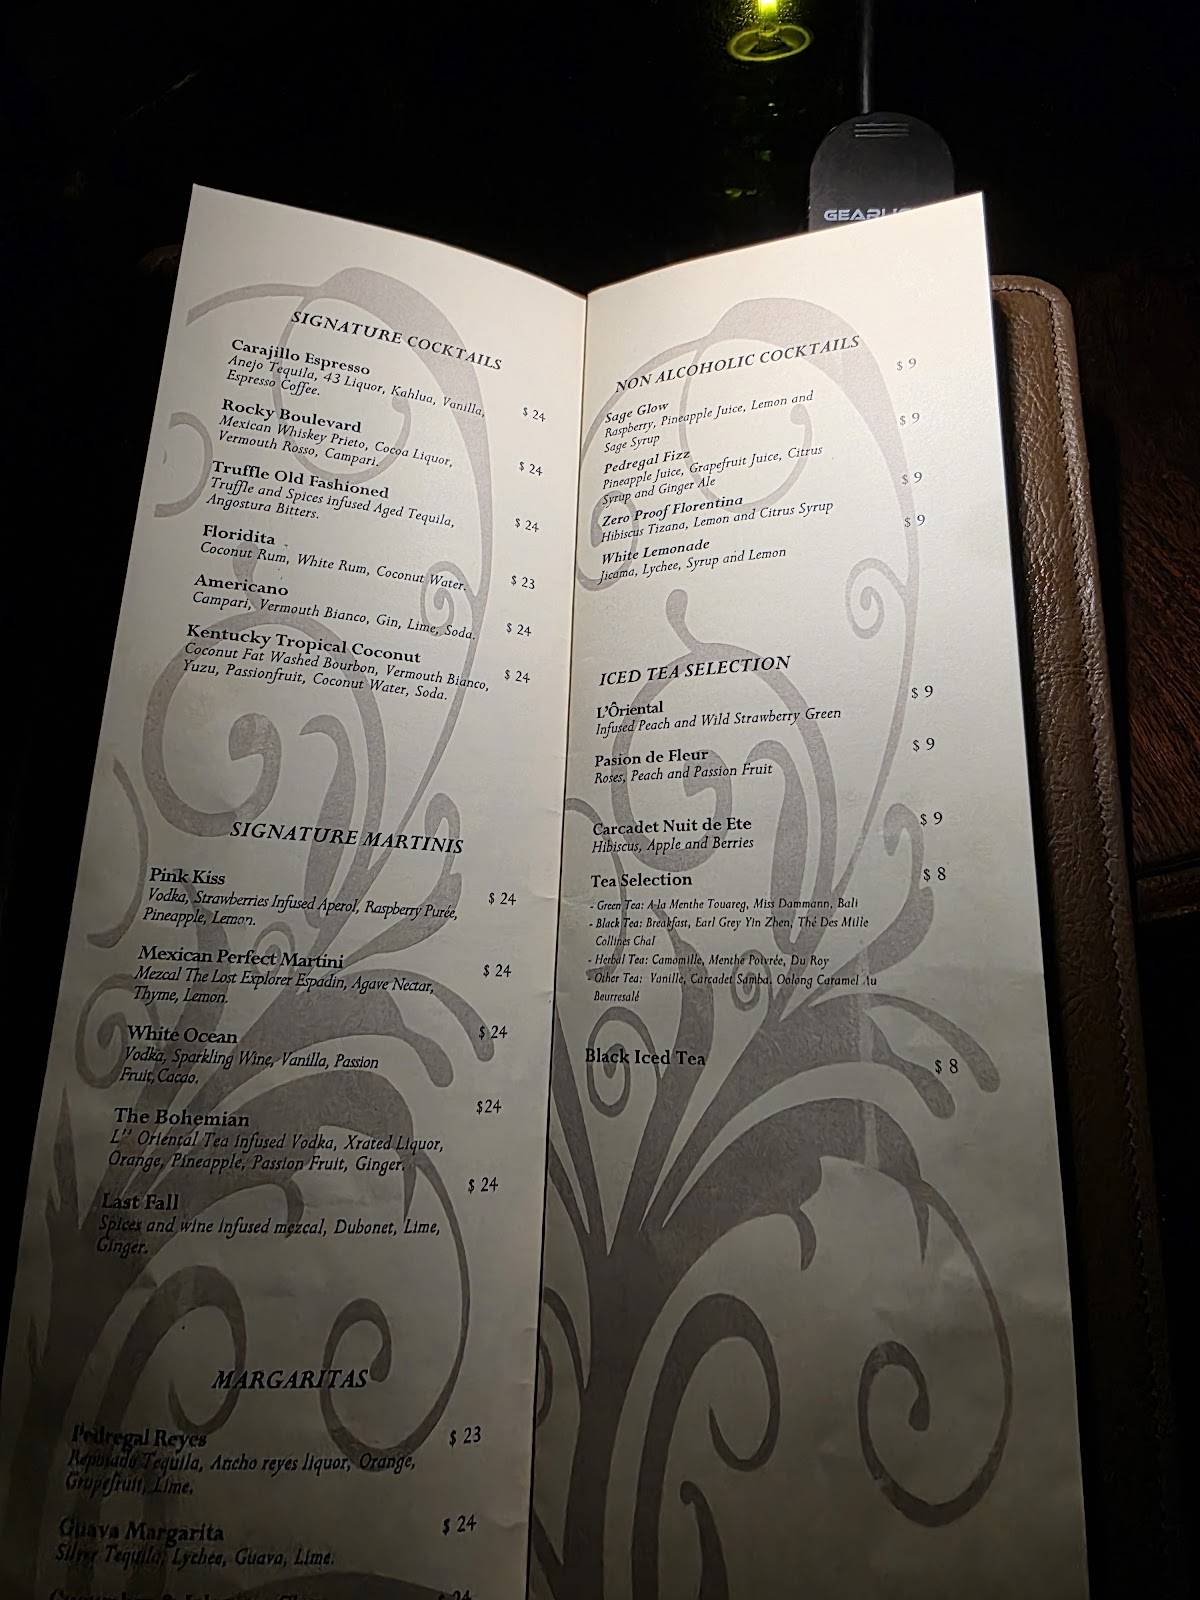 GEARLI
SIGNATURE COCKTAILS
Carajillo Espresso
Anejo Tequila, 43 Liquor, Kahlua, Vanilla,
Espresso Coffee.
$ 24
Rocky Boulevard
Mexican Whiskey Prieto, Cocoa Liquor,
Vermouth Rosso, Campari.
$ 24
Truffle Old Fashioned
Truffle and Spices infused Aged Tequila,
Angostura Bitters.
$ 24
Floridita
Coconut Rum, White Rum, Coconut Water.
$ 23
Americano
Campari, Vermouth Bianco, Gin, Lime, Soda.
$ 24
Kentucky Tropical Coconut
Coconut Fat Washed Bourbon, Vermouth Bianco,
Yuzu, Passionfruit, Coconut Water, Soda.
$ 24
SIGNATURE MARTINIS
Pink Kiss
Vodka, Strawberries Infused Aperol, Raspberry Purée,
Pineapple, Lemon.
$ 24
Mexican Perfect Martini
Mezcal The Lost Explorer Espadin, Agave Nectar,
Thyme, Lemon.
$ 24
White Ocean
Vodka, Sparkling Wine, Vanilla, Passion
Fruit, Cacao.
$ 24
The Bohemian
L'' Oriental Tea infused Vodka, Xrated Liquor,
Orange, Pineapple, Passion Fruit, Ginger.
$24
Last Fall
Spices and wine infused mezcal, Dubonet, Lime,
Ginger.
$ 24
MARGARITAS
Pedregal Reyes
Reposado Tequila, Ancho reyes liquor, Orange,
Grapefruit, Lime.
$ 23
Guava Margarita
Silver Tequila, Lychee, Guava, Lime.
$ 24
$ 24
NON ALCOHOLIC COCKTAILS
Sage Glow
Raspberry, Pineapple Juice, Lemon and
Sage Syrup
$ 9
Pedregal Fizz
Pineapple Juice, Grapefruit Juice, Citrus
Syrup and Ginger Ale
$ 9
Zero Proof Florentina
Hibiscus Tizana, Lemon and Citrus Syrup
$ 9
White Lemonade
Jicama, Lychee, Syrup and Lemon
$ 9
ICED TEA SELECTION
L'Ôriental
Infused Peach and Wild Strawberry Green
$ 9
Pasion de Fleur
Roses, Peach and Passion Fruit
$ 9
Carcadet Nuit de Ete
Hibiscus, Apple and Berries
$ 9
Tea Selection
$ 8
- Green Tea: A la Menthe Touareg, Miss Dammann, Bali
- Black Tea: Breakfast, Earl Grey Yin Zhen, Thé Des Mille
Collines Chaï
- Herbal Tea: Camomille, Menthe Poivrée, Du Roy
- Other Tea: Vanille, Carcadet Samba. Oolong Caramel Au
Beurresalé
Black Iced Tea
$ 8